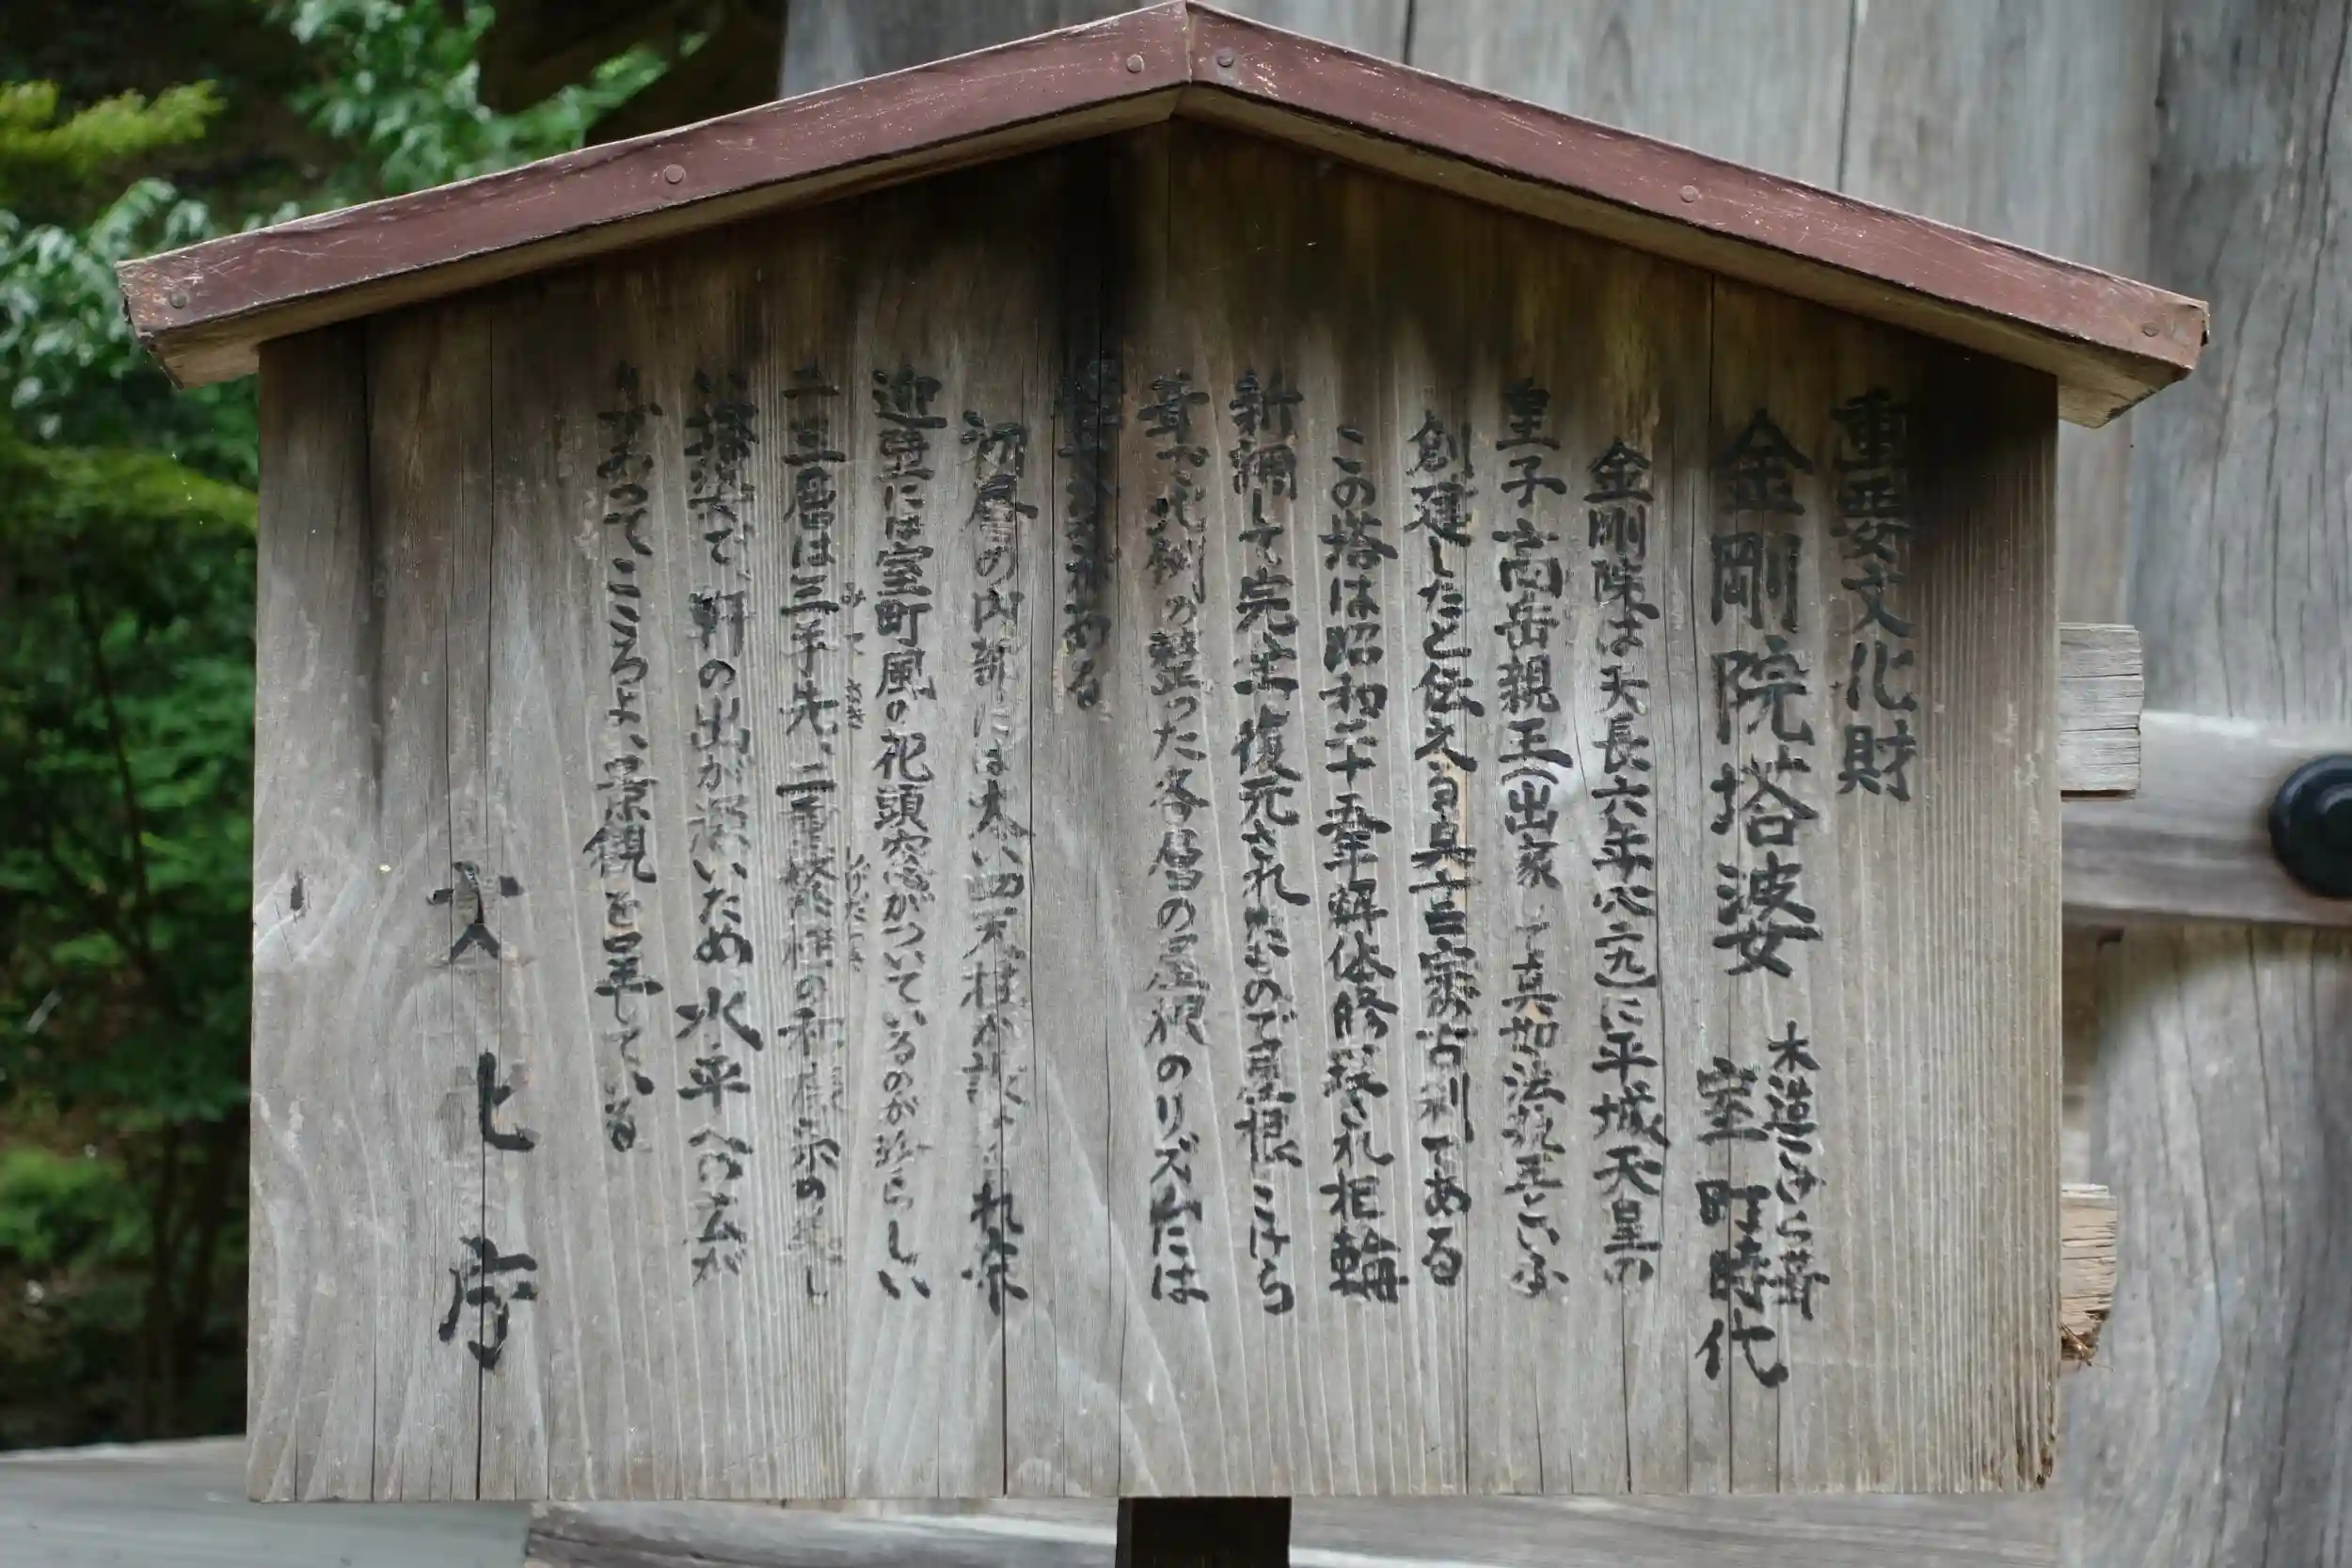 重要文化財
金剛院塔婆 木造こけら葺 室町時代
金剛院は天長六年(八二九)に平城天皇の
皇子高岳親王(出家して真如法親王という)
創建したと伝える真言宗の古刹である
この塔は昭和二十五年解体修理され相輪
新調して完全復元されたもので屋根こけら
葺で比例の整った各層の屋根のリズムには
ある
初層の内部には太い四天柱が 来
迎壁には室町風の花頭窓がついているのが珍らしい
二三層は三手先、二重繁垂木の和様 の美し
い塔婆で、軒の出が深いため水平への広が
りがあってこころよい景観を呈している
文化庁